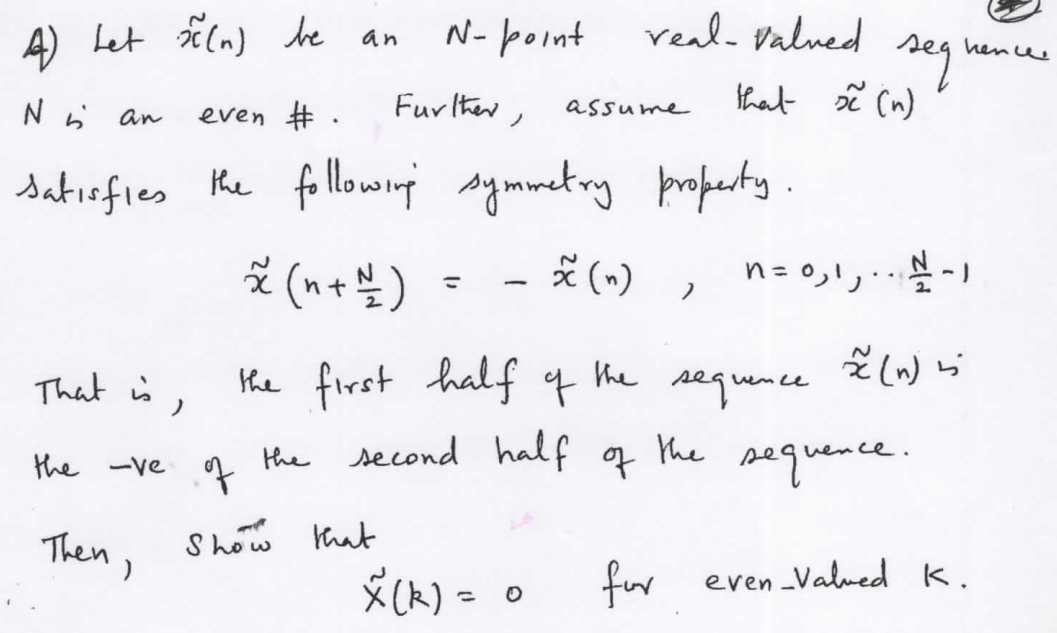 A) Let x̃(n) be an N-point real-valued sequence
N is an even #. Further, assume that x̃(n)
satisfies the following symmetry property.
x̃(n+N/2) = - x̃(n) , n = 0,1,..N/2-1
That is, the first half of the sequence x̃(n) is
the -ve of the second half of the sequence.
Then, show that
X̃(k) = 0 for even-valued k.